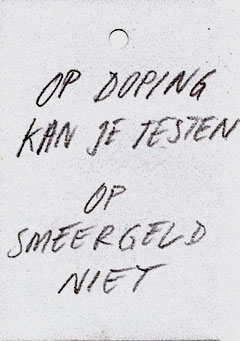 OP DOPING
KAN JE TESTEN
OP
SMEERGELD
NIET